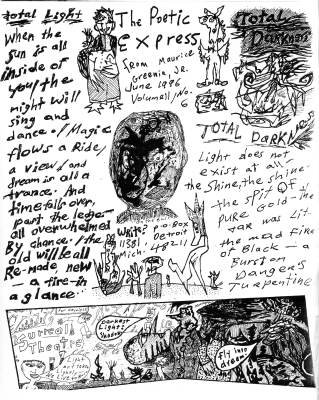 Total Light
When the
sun is all
inside of
you/the
night will
sing and
dance./Magic
flows a Ride/
a view/and
dream is all a
trance. And
time falls over,
past the ledge—
all overwhelmed
By chance./the
old will all
Re-made new
— a fire-in
a glance...
The Poetic
Express
From Maurice
Greenia, Jr.
June 1996
Volume 11/No.
6
Write?
P.O. Box
11381
Detroit
Mich.
48211
Total
Darkness
TOTAL DARKNess
Light does not
exist at all—
the Shine, the shine.
the spit of
PURE Gold—the
tar was Lit.
the mad fire
of Black—a
Burst on
Dangers
Turpentine
Surreal
Theatre
Darkness
Light:
Shadow
Fly into
dream